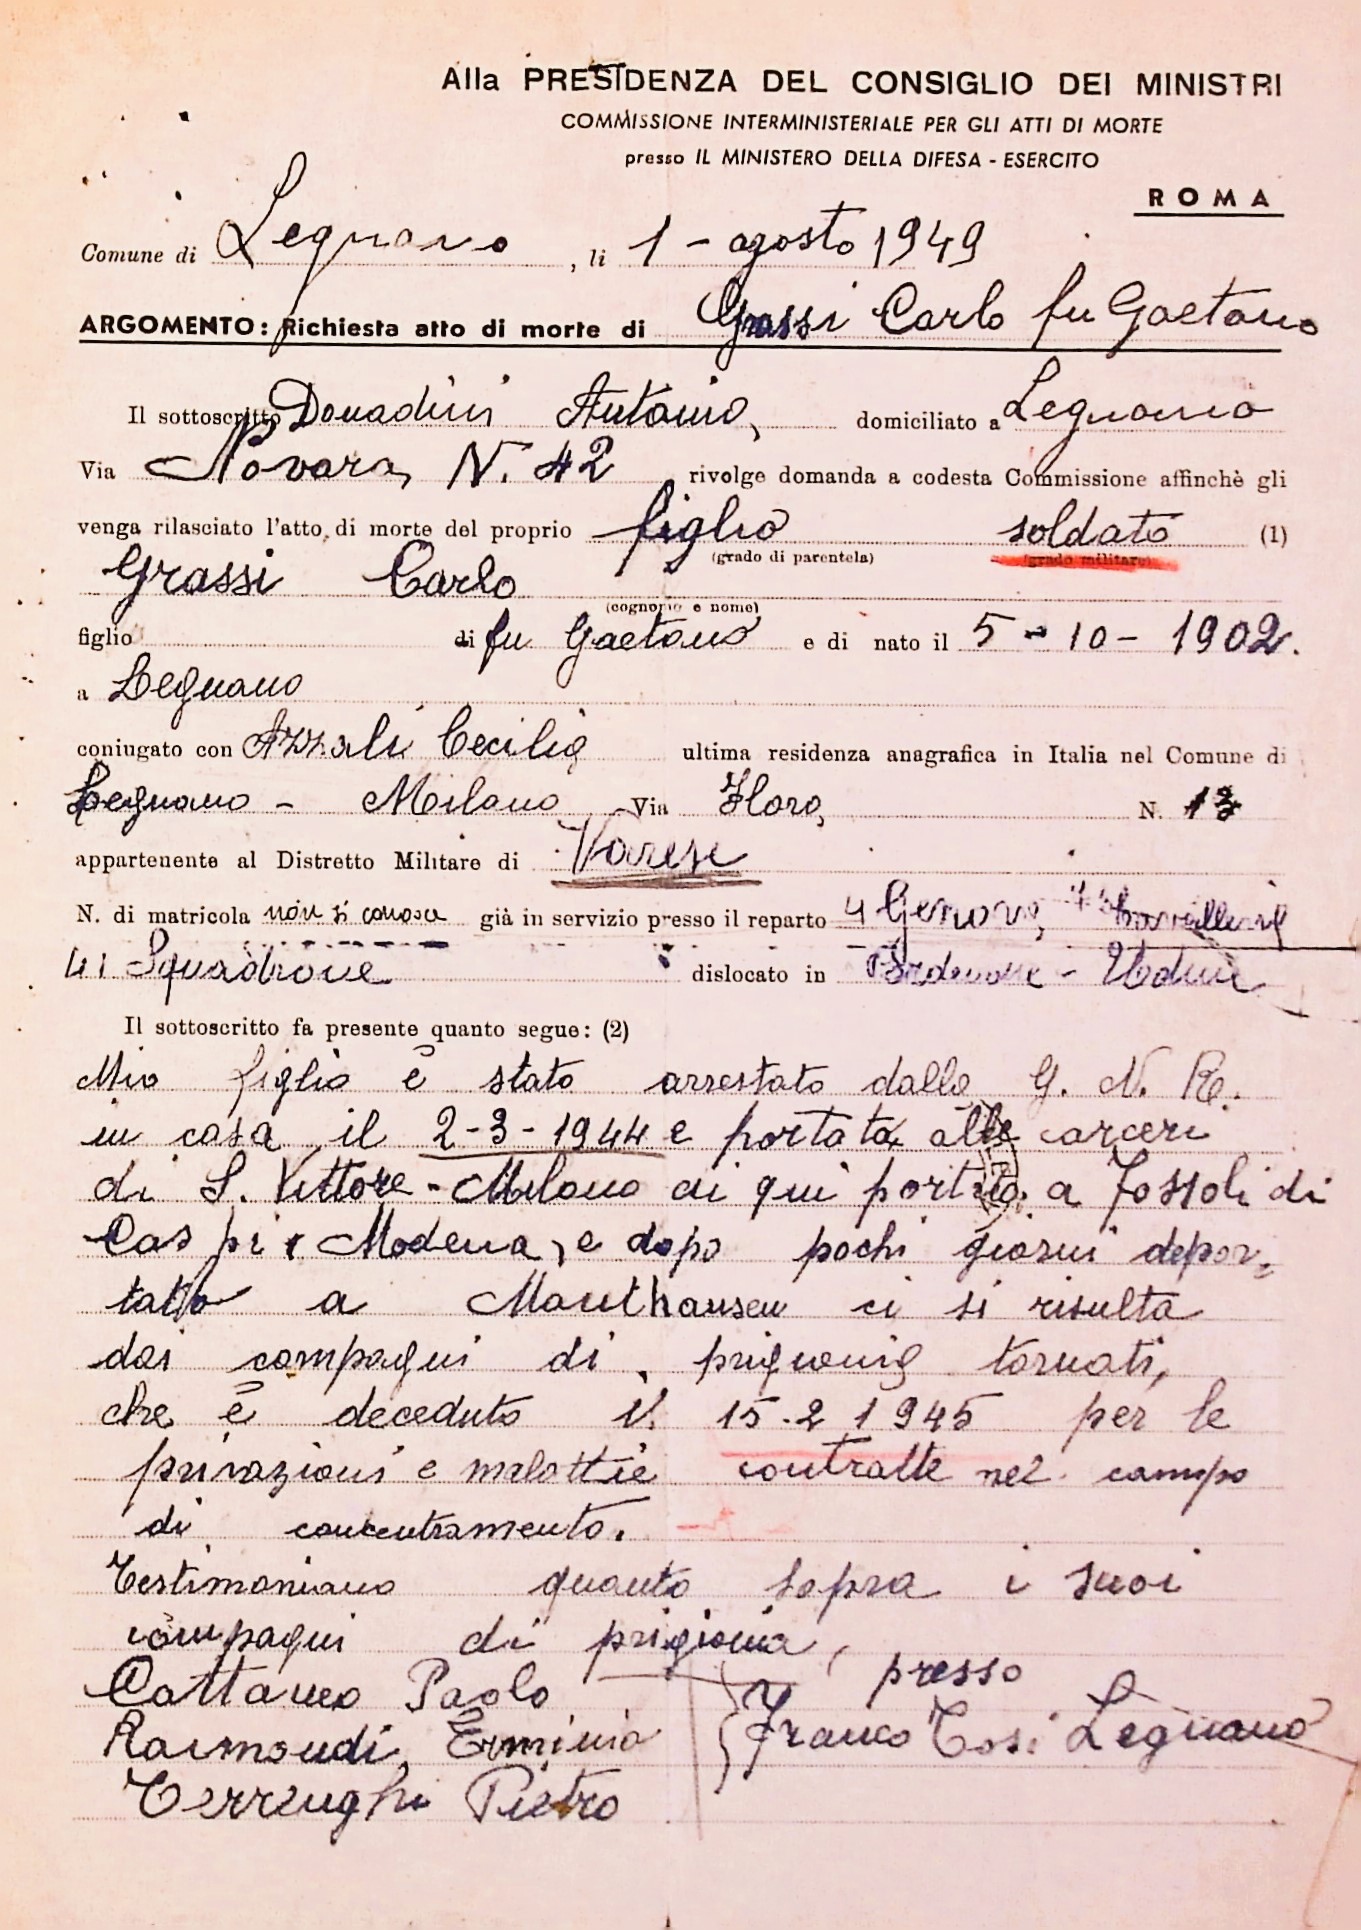 Alla PRESIDENZA DEL CONSIGLIO DEI MINISTRI
COMMISSIONE INTERMINISTERIALE PER GLI ATTI DI MORTE
presso IL MINISTERO DELLA DIFESA - ESERCITO
ROMA
Comune di Legnano, li 1 - agosto 1949
ARGOMENTO: Richiesta atto di morte di Grassi Carlo fu Gaetano
Il sottoscritto Donadini Antonio, domiciliato a Legnano
Via Novara, N. 42 rivolge domanda a codesta Commissione affinchè gli
venga rilasciato l'atto di morte del proprio figlio soldato (1)
(grado di parentela) (grado militare)
Grassi Carlo
(cognome e nome)
figlio di fu Gaetano e di nato il 5 - 10 - 1902.
a Legnano
coniugato con Azzali Cecilia ultima residenza anagrafica in Italia nel Comune di
Legnano - Milano Via Flora, N. 13
appartenente al Distretto Militare di Varese
N. di matricola non si conosce già in servizio presso il reparto 4 Genova,
4i Squadrone dislocato in - Udine
Il sottoscritto fa presente quanto segue: (2)
Mio figlio è stato arrestato dalla G. N. R.
in casa il 2-3-1944 e portato alle carceri
di S. Vittore - Milano di qui portato a Fossoli di
Caspi Modena, e dopo pochi giorni depor-
tato a Mauthausen ci si risulta
dai compagni di prigionia tornati,
che è deceduto il 15.2 1945 per le
privazioni e malattie contratte nel campo
di concentramento.
Testimoniano quanto sopra i suoi
compagni di prigionia, presso
Cattaneo Paolo
Raimondi Erminio Franco Tosi Legnano
Terrenghi Pietro